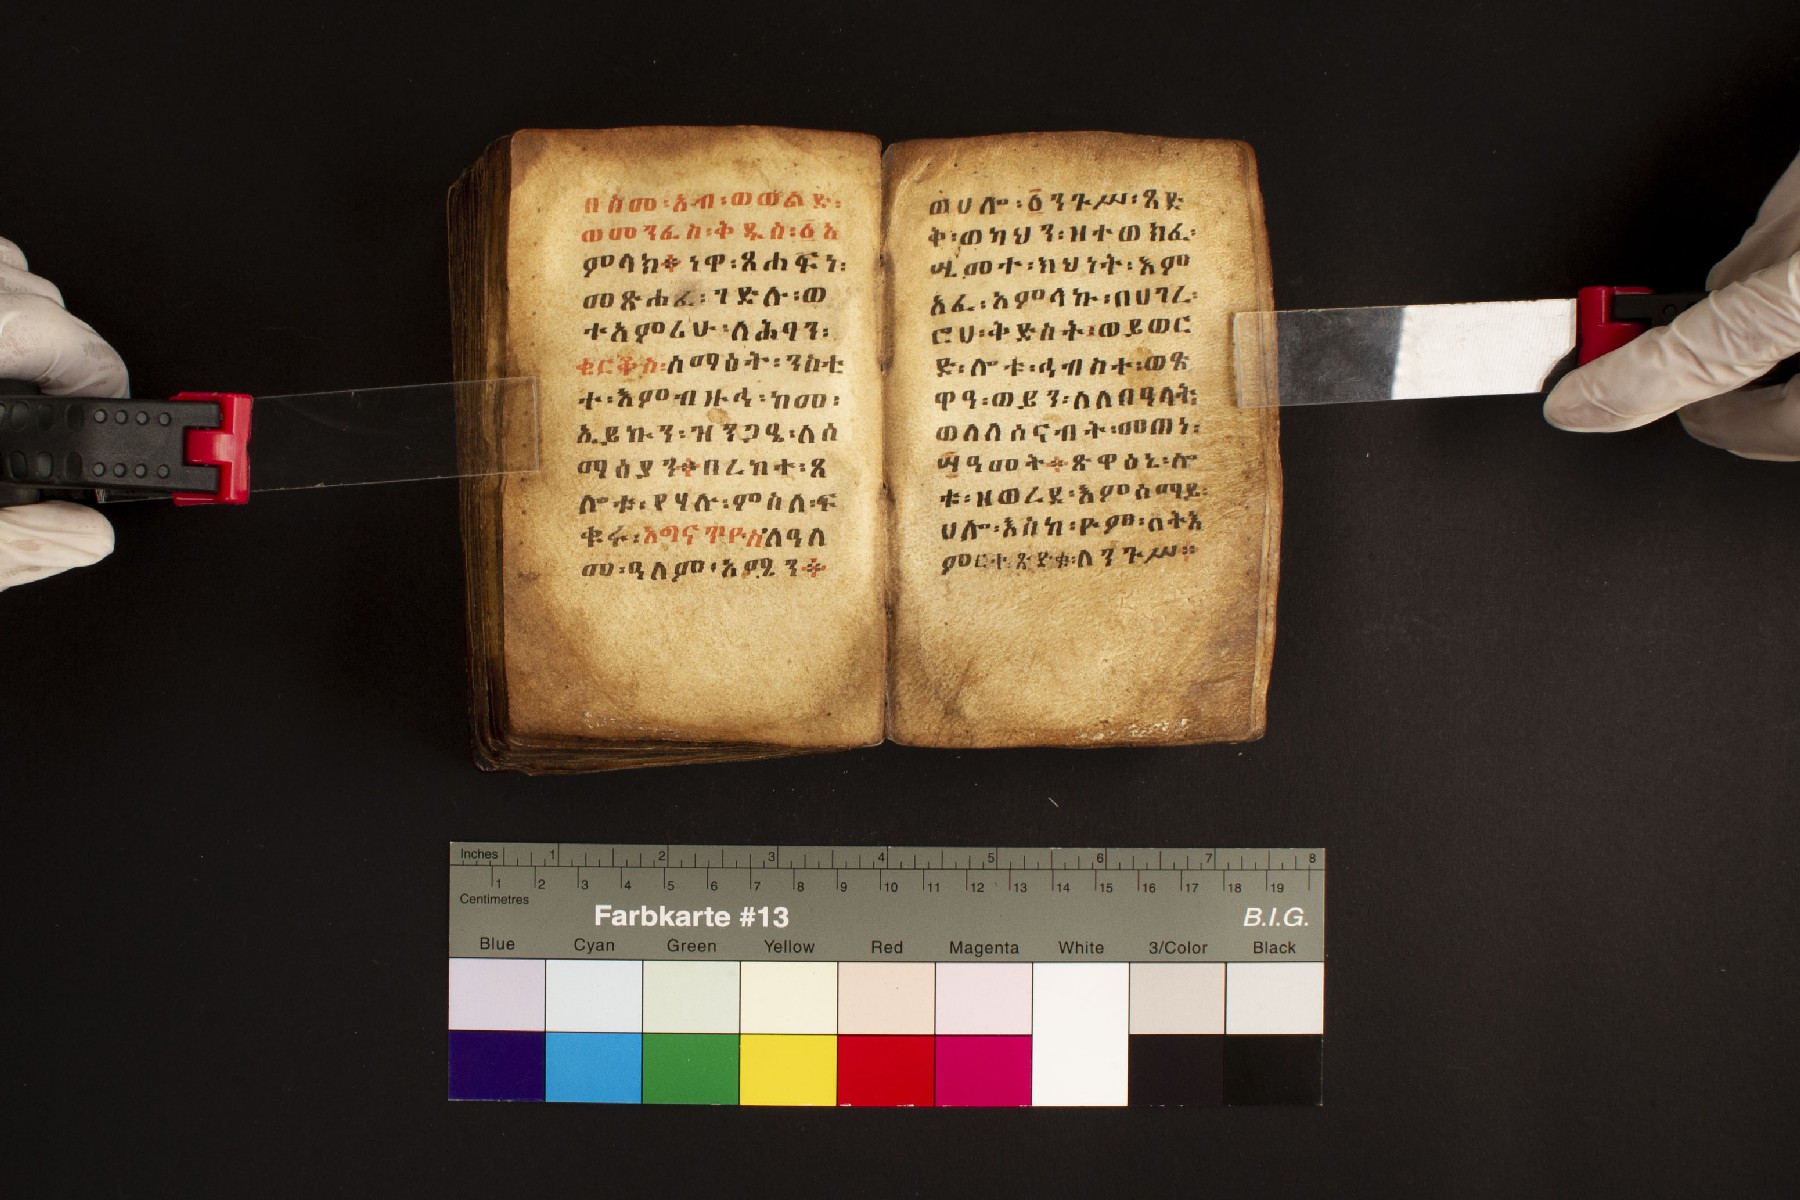 በስመ፡አብ፡ወወልድ፡
ወመንፈስ፡ቅዱስ፡፩አ
ምላክ፨ነዋ፡ጸሐፍነ፡
መጽሐፈ፡ገድሉ፡ወ
ተአምሪሁ፡ለሕፃን፡
ቂርቆስ፡ሰማዕት፡ንስቲ
ተ፡እምብዙኅ፡ከመ፡
ኢይኩን፡ዝንጋዔ፡ለሰ
ማዕያን፨በረከተ፡ጸ
ሎቱ፡የሃሉ፡ምስለ፡ፍ
ቁሩ፡አግናጥዮስ፡ለዓለ
መ፡ዓለም፡አሜን፨
ወሀሎ፡፩ንጉሥ፡ጻድ
ቅ፡ወካህን፡ዘተወክፈ፡
ሢመተ፡ክህነት፡እም
አፈ፡አምላኩ፡በሀገረ፡
ሮሀ፡ቅድስት፡ወይወር
ድ፡ሎቱ፡ኅብስተ፡ወጽ
ዋዓ፡ወይን፡ለለበዓላት፡
ወለለሰናብት፡መጠነ፡
፵ዓመት፨ጽዋዕኒ፡ሎ
ቱ፡ዘወረደ፡እምሰማይ፡
ሀሎ፡እስከ፡ዮም፡ለትእ
ምርተ፡ጽድቁ፡ለንጉሥ፨
Inches 1 2 3 4 5 6 7 8
1 2 3 4 5 6 7 8 9 10 11 12 13 14 15 16 17 18 19
Centimetres
Farbkarte #13 B.I.G.
Blue Cyan Green Yellow Red Magenta White 3/Color Black